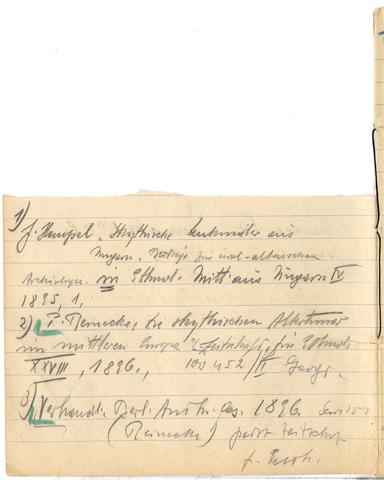 1)
J. Hampel "Skythische Denkmäler aus
Ungarn, Beiträge zur ural-altaischen
Archäologie. in Ethnol. Mitt. aus Ungarn IV
1895, 1,
2) P. Reinecke, die skythischen Altertümer
im mittleren Europa" (Zeitschrift für Ethnol.
XXVIII, 1896.,
3) Verhandl. Berl. Anthr. Ges. 1896.
(Reinecke) Zeitschr.
f. Ethn.